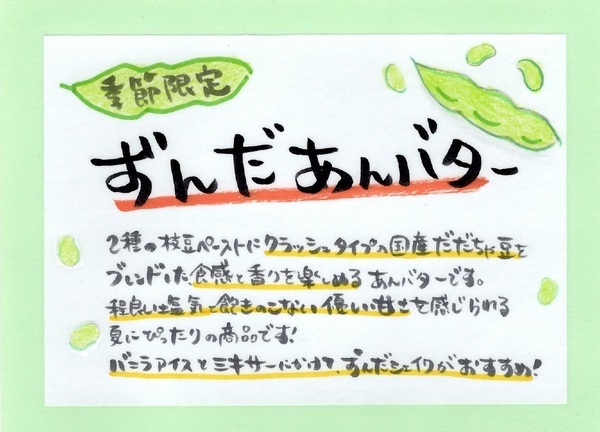 季節限定
ずんだあんバター
2種の枝豆ペーストにクラッシュタイプの国産だだちゃ豆を
ブレンドした、食感と香りを楽しめるあんバターです。
程良い塩気で飽きのこない優しい甘さを感じられる
夏にぴったりの商品です!
バニラアイスとミキサーにかけて、ずんだシェイクがおすすめ!